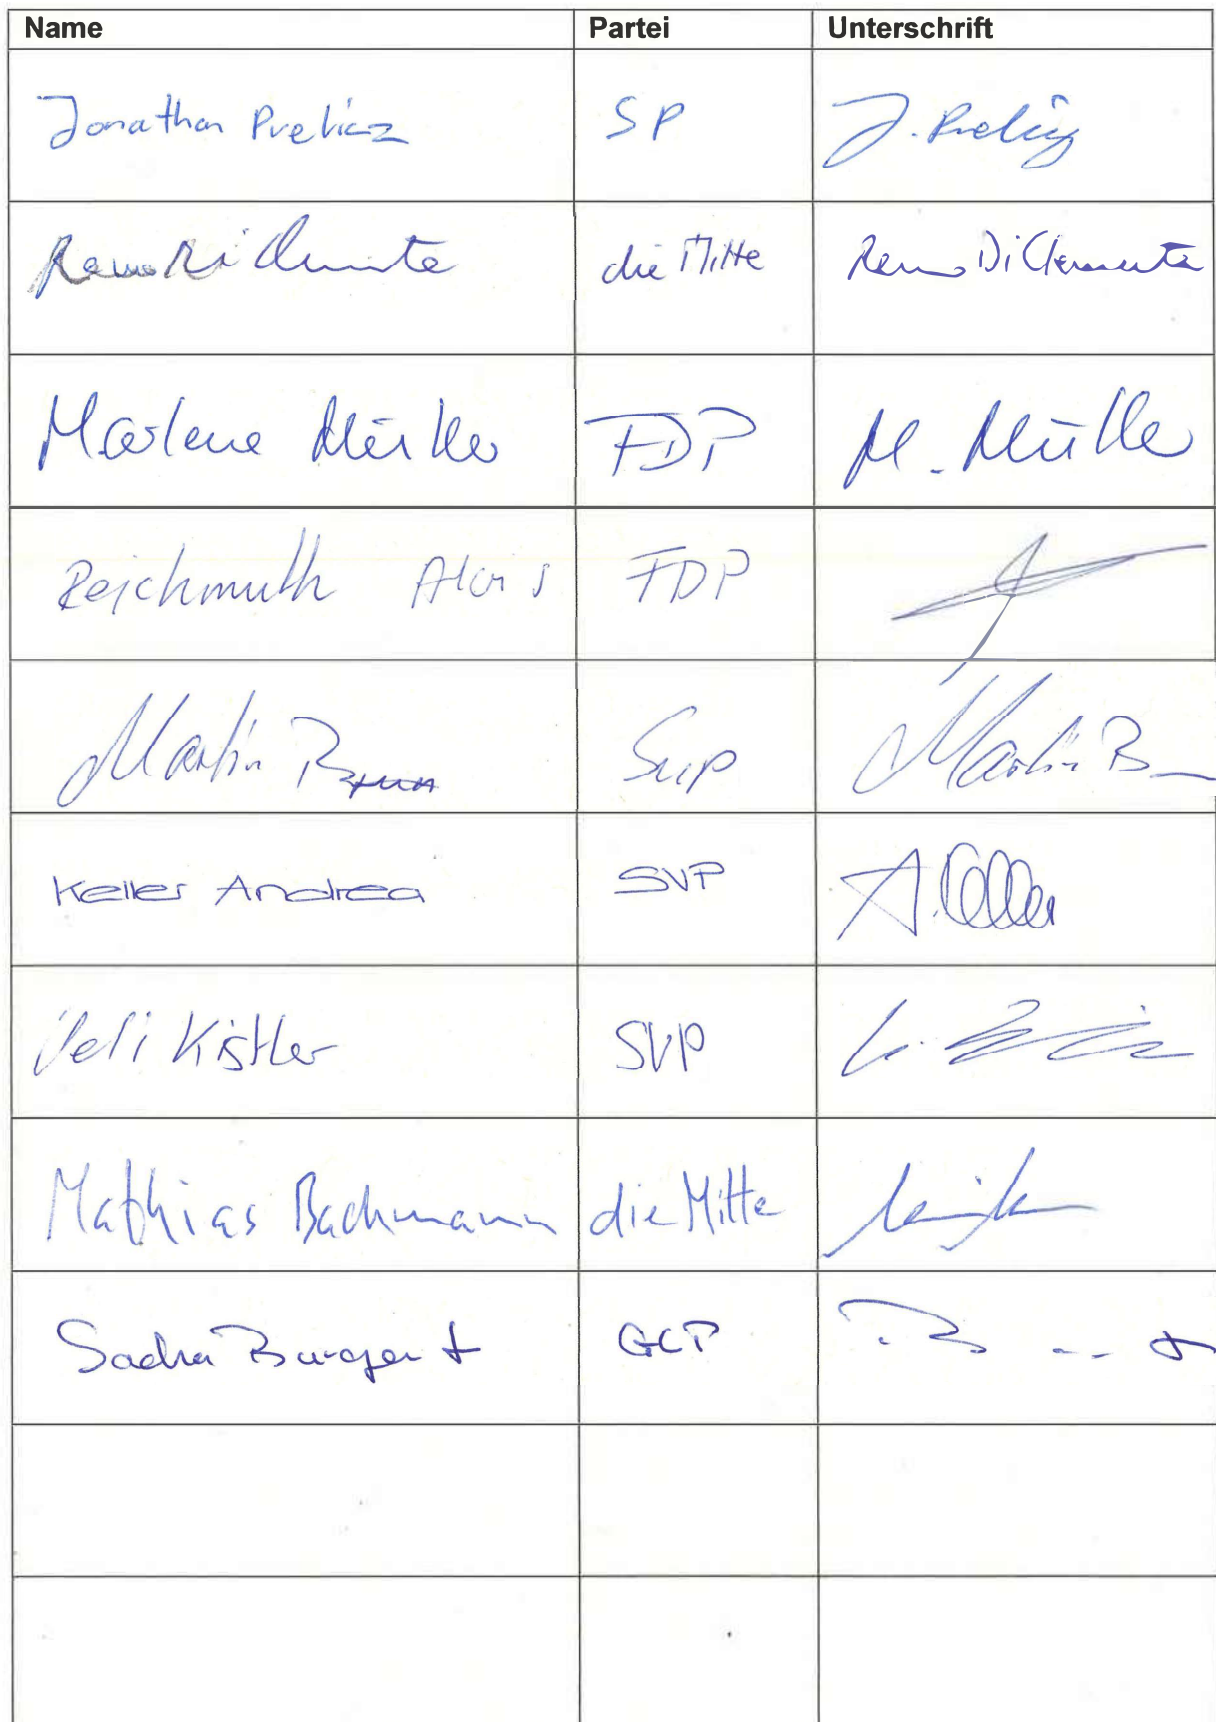 Name Partei Unterschrift
Jonathan Prelicz SP J. Prelicz
Remo Di Clemente die Mitte Remo Di Clemente
Marlene Müller FDP M. Müller
Reichmuth Alois FDP
Martin Brun SVP Martin B
Keller Andrea SVP A. Keller
Ueli Kistler SVP
Mathias Bachmann die Mitte
GLP